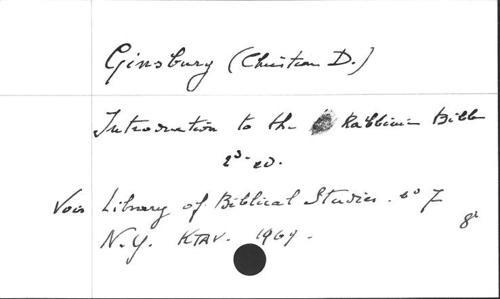 Ginsburg (Christian D.)
Introduction to the Rabbinic Bible
2d ed.
Voir Library of Biblical Studies. no 7
8°
N.Y. KTAV. 1967.